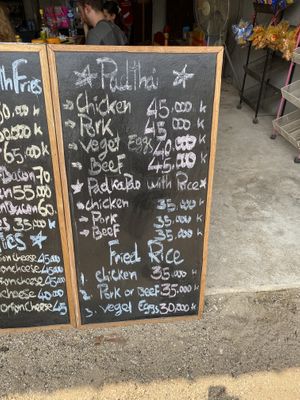 th Fries
65.000
70
55.000
60.
35.000
ies ☆
45.000
45.000
cheese 40.000
cheese 45
☆ Padthai ☆
→ Chicken 45.000 k
→ Pork 45.000 k
→ veget Eggs 40.000 k
→ BeeF 45.000 k
☆ Padkapao with Rice ☆
→ chicken 35.000 k
→ Pork 35.000 k
→ BeeF 35.000 k
Fried Rice
1. chicken 35.000 k
2. Pork or BeeF 35.000 k
3. veget Eggs 30.000 k